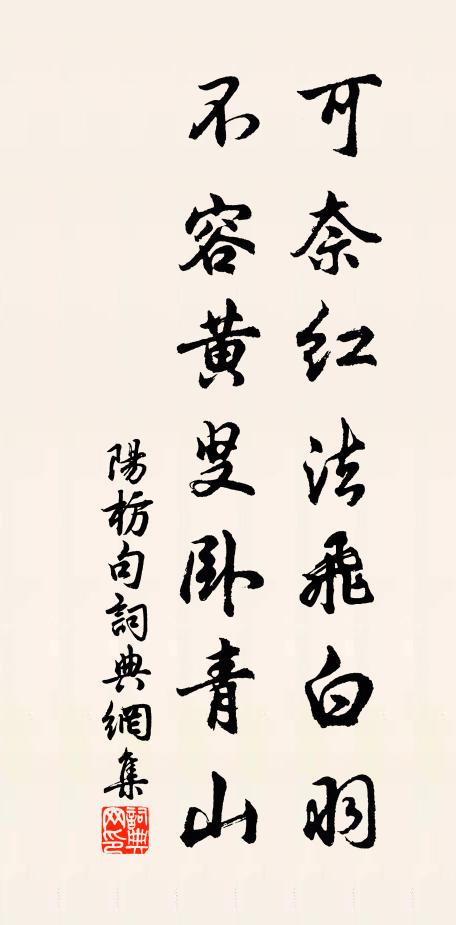 可奈红法飛白羽
不容黄叟卧青山
陽枋句詞典網集
詞典
网印